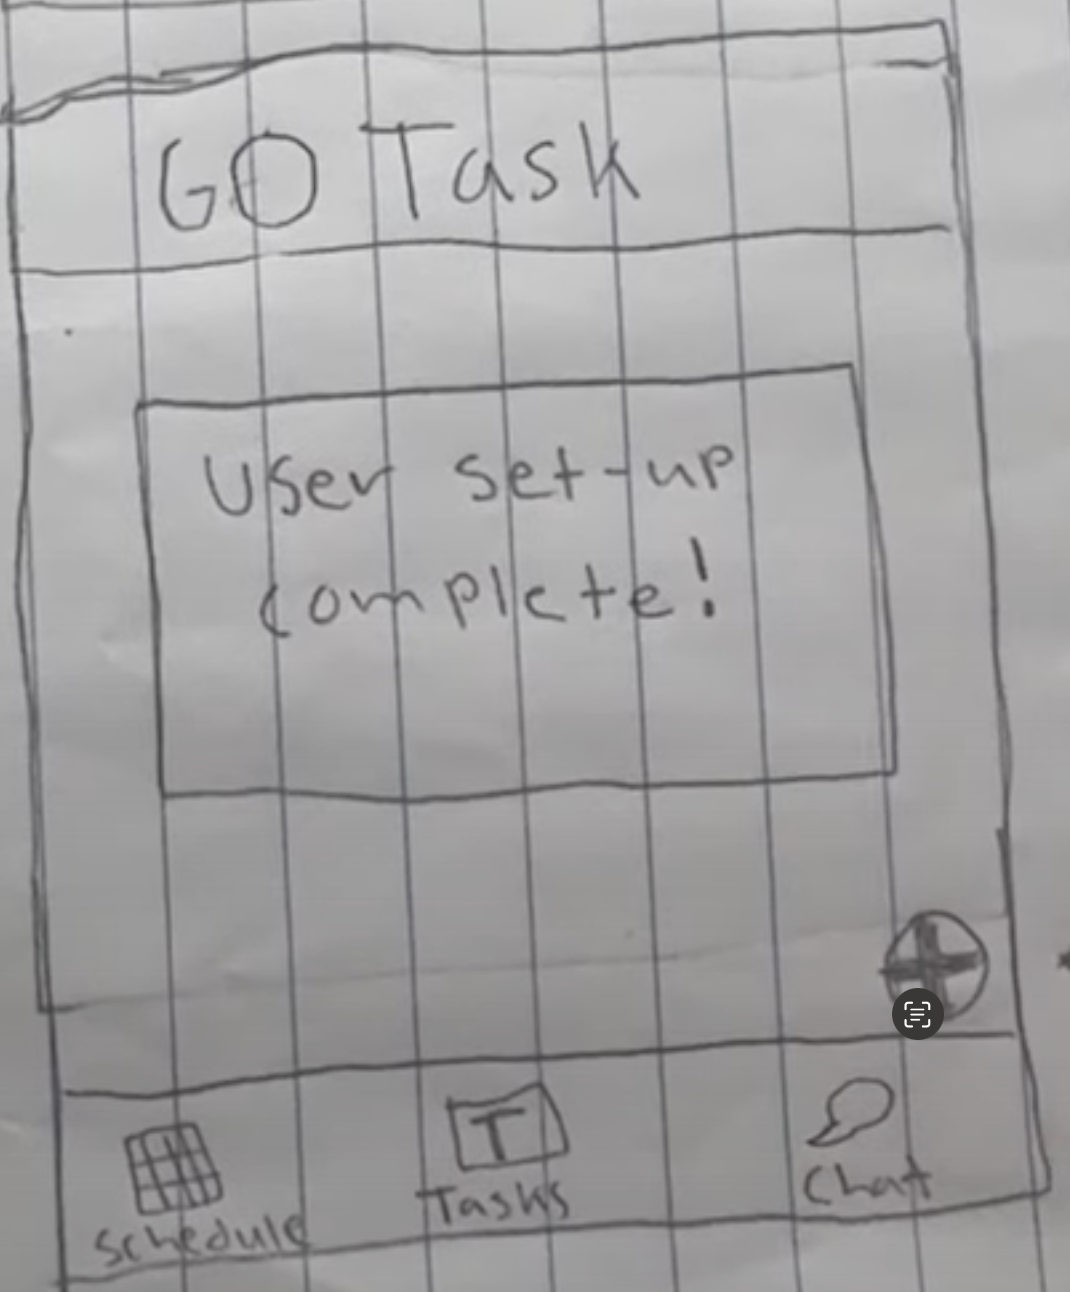 GO Task
User set-up
complete!
T
Schedule
Tasks
Chat